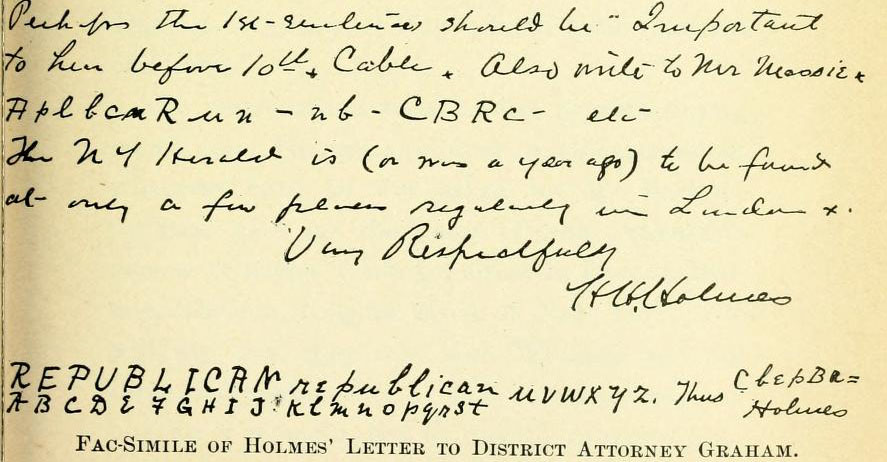 Perhaps the 1st sentence should be "Important
to hear before 10th". Cable. Also write to Mr Massie.
AplbcnRun - nb - CBRc - etc
The NY Herald is (or was a year ago) to be found
at only a few places regularly in London.
Very Respectfully
HH Holmes
REPUBLICAN republican uvwxyz. Thus CbepBa=
ABCDEFGHIJ klmnopqrst Holmes
FAC-SIMILE OF HOLMES' LETTER TO DISTRICT ATTORNEY GRAHAM.